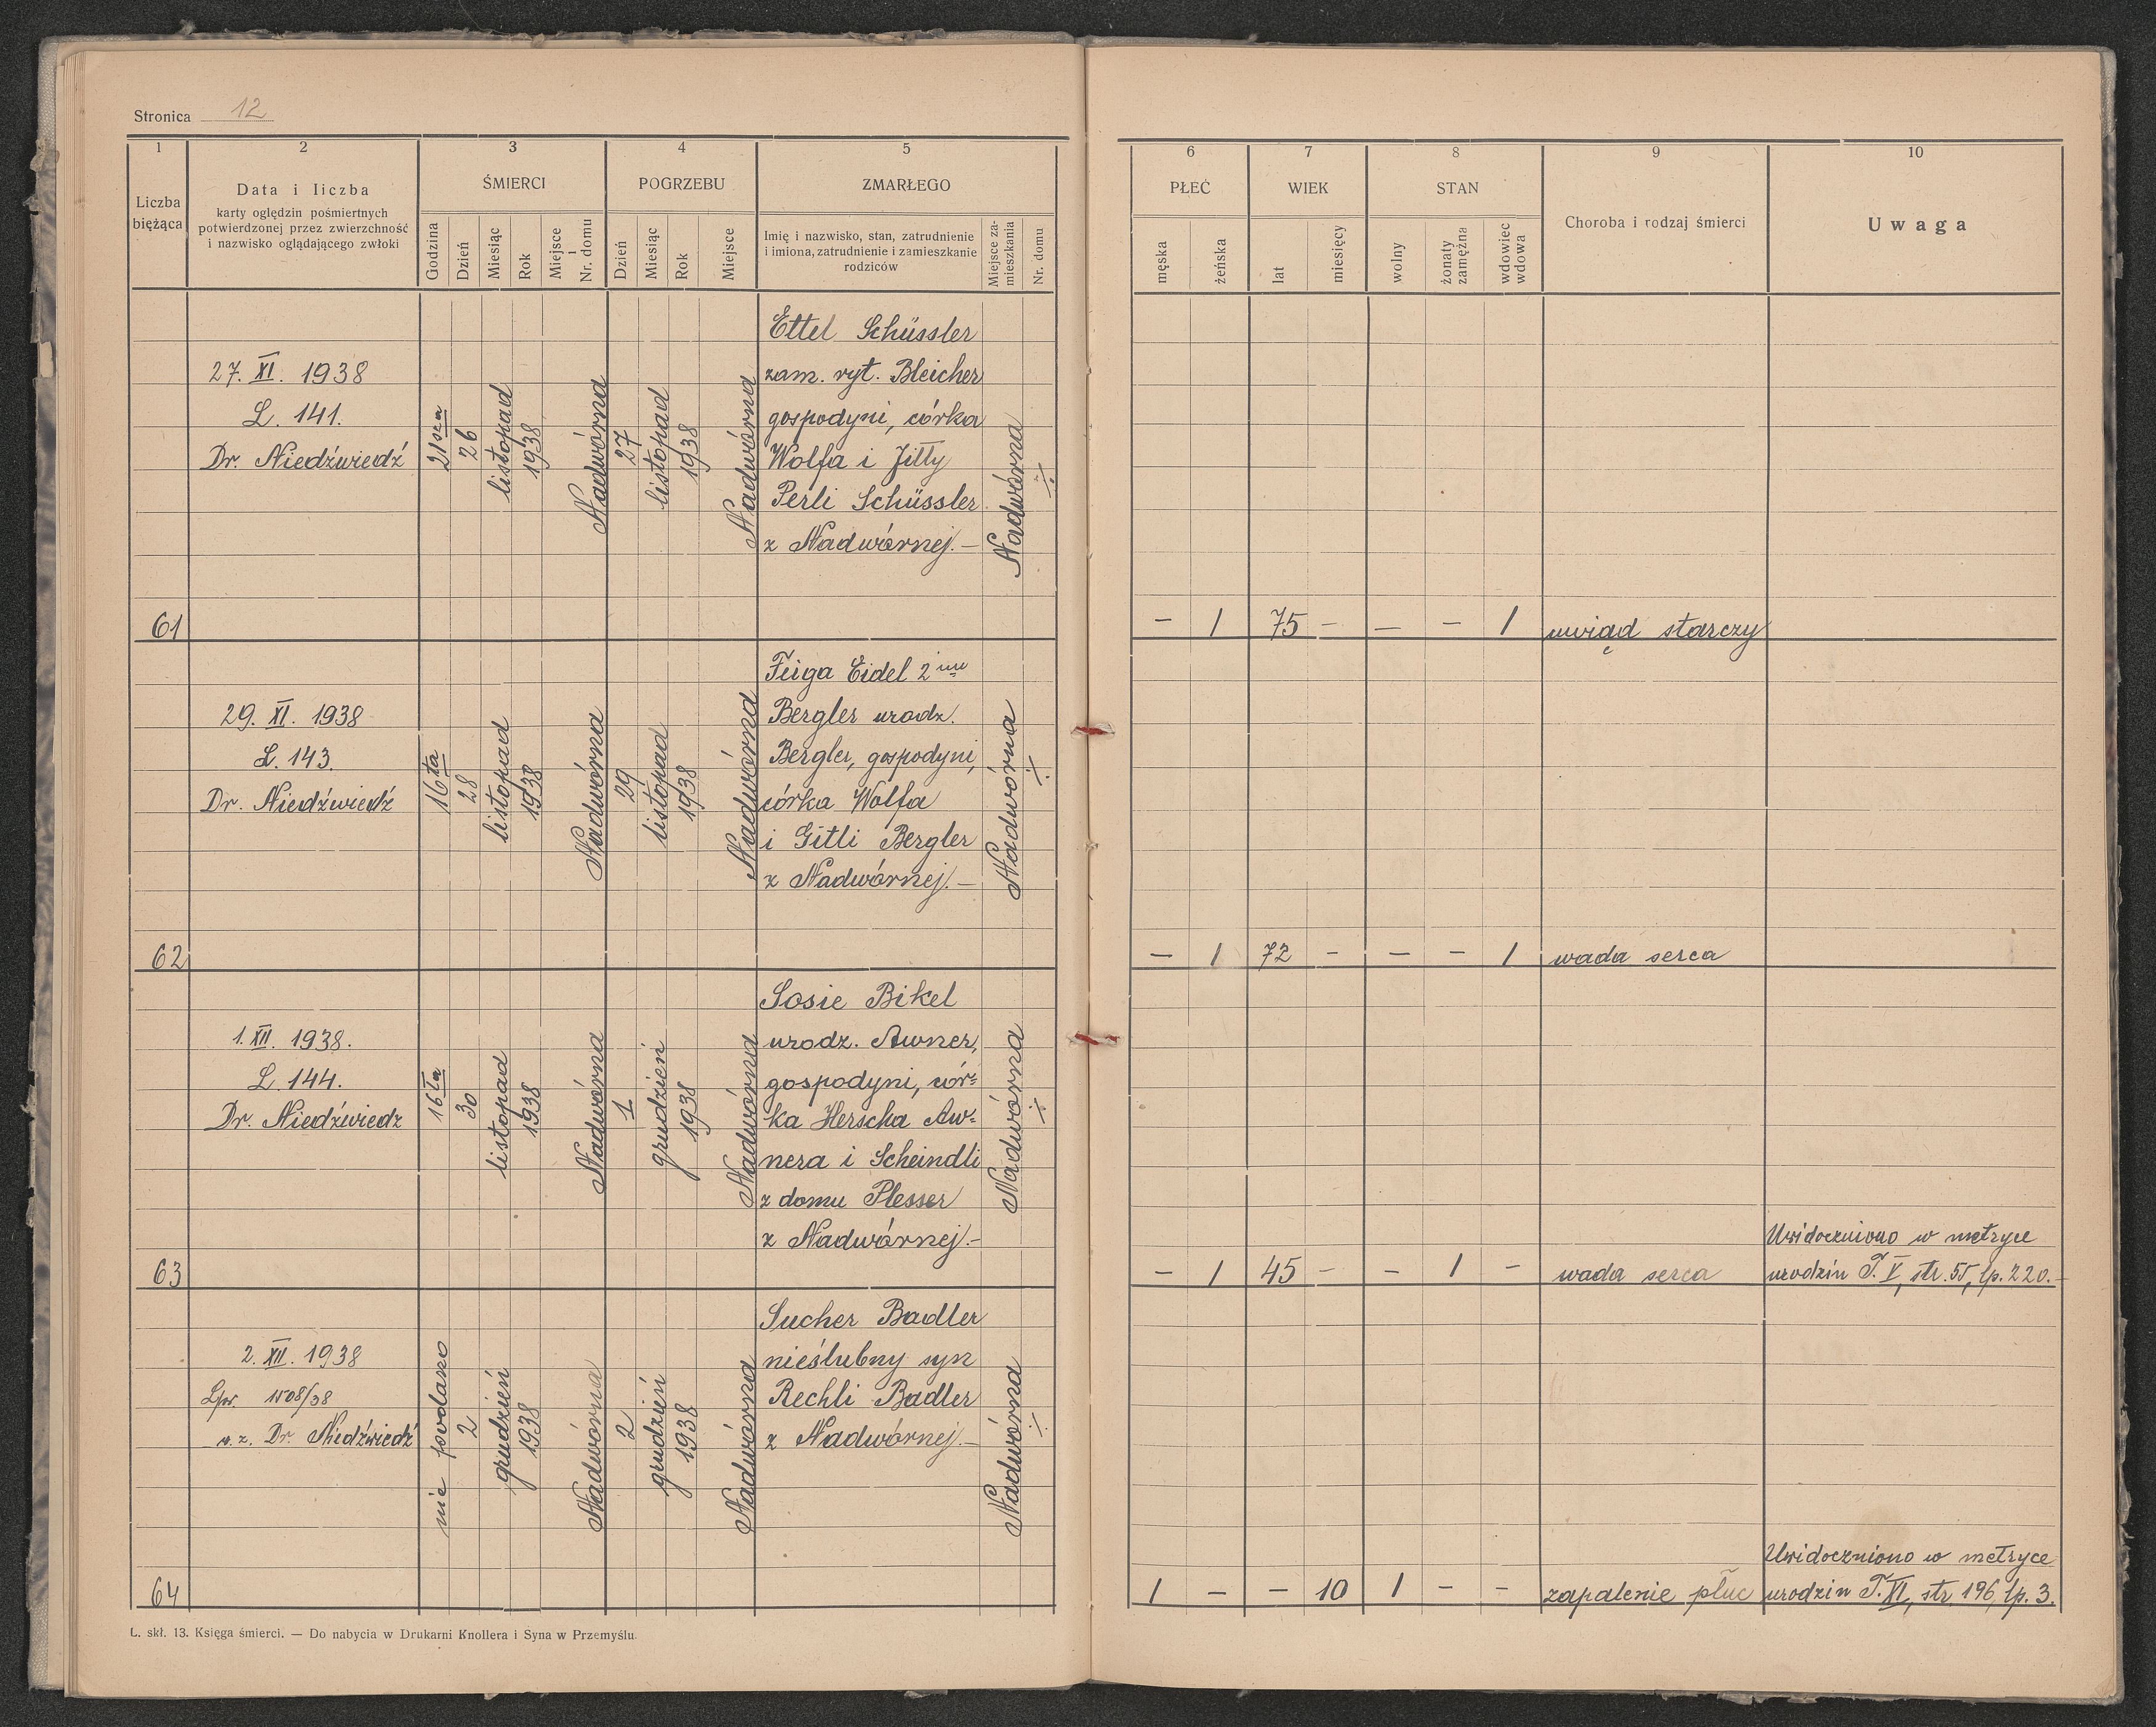 Stronica 12
1 2 3 4 5 6 7 8 9 10
Liczba bieżąca
Data i liczba
karty oględzin pośmiertnych
potwierdzonej przez zwierzchność
i nazwisko oglądającego zwłoki
ŚMIERCI
Godzina
Dzień
Miesiąc
Rok
Miejsce i Nr. domu
POGRZEBU
Dzień
Miesiąc
Rok
Miejsce
ZMARŁEGO
Imię i nazwisko, stan, zatrudnienie
i imiona, zatrudnienie i zamieszkanie
rodziców
Miejsce za-
mieszkania
Nr. domu
PŁEĆ
męska
żeńska
WIEK
lat
miesięcy
STAN
wolny
żonaty
zamężna
wdowiec
wdowa
Choroba i rodzaj śmierci
Uwaga
61
27. XI. 1938
L. 141.
Dr. Niedźwiedź
21sza
26
listopad
1938
Nadwórna
27
listopad
1938
Nadwórna
Ettel Schüssler
zam. ryt. Bleicher
gospodyni, córka
Wolfa i Jitty
Perli Schüssler
z Nadwórnej.—
Nadwórna
·/·
— 1 75 — — — 1
uwiąd starczy
62
29. XI. 1938
L. 143.
Dr. Niedźwiedź
16ta
28
listopad
1938
Nadwórna
29
listopad
1938
Nadwórna
Feiga Eidel 2im
Bergler urodz.
Bergler, gospodyni,
córka Wolfa
i Gitli Bergler
z Nadwórnej.—
Nadwórna
·/·
— 1 72 — — — 1
wada serca
63
1. XII. 1938.
L. 144.
Dr. Niedźwiedz
16ta
30
listopad
1938
Nadwórna
1
grudzień
1938
Nadwórna
Sosie Bikel
urodz. Awner,
gospodyni, cór=
ka Herscha Aw=
nera i Scheindli
z domu Plesser
z Nadwórnej.—
Nadwórna
·/·
— 1 45 — — 1 —
wada serca
Uwidoczniono w metryce
urodzin T. V, str. 55, lp. 220.—
64
2. XII. 1938
Lpr. 1508/38
w.z. Dr. Niedźwiedź
nie podano
2
grudzień
1938
Nadwórna
2
grudzień
1938
Nadwórna
Sucher Badler
nieślubny syn
Rechli Badler
z Nadwórnej.—
Nadwórna
·/·
1 — — 10 1 — —
zapalenie płuc
Uwidoczniono w metryce
urodzin T. XI, str. 196, lp. 3.
L. skł. 13. Księga śmierci. — Do nabycia w Drukarni Knollera i Syna w Przemyślu.